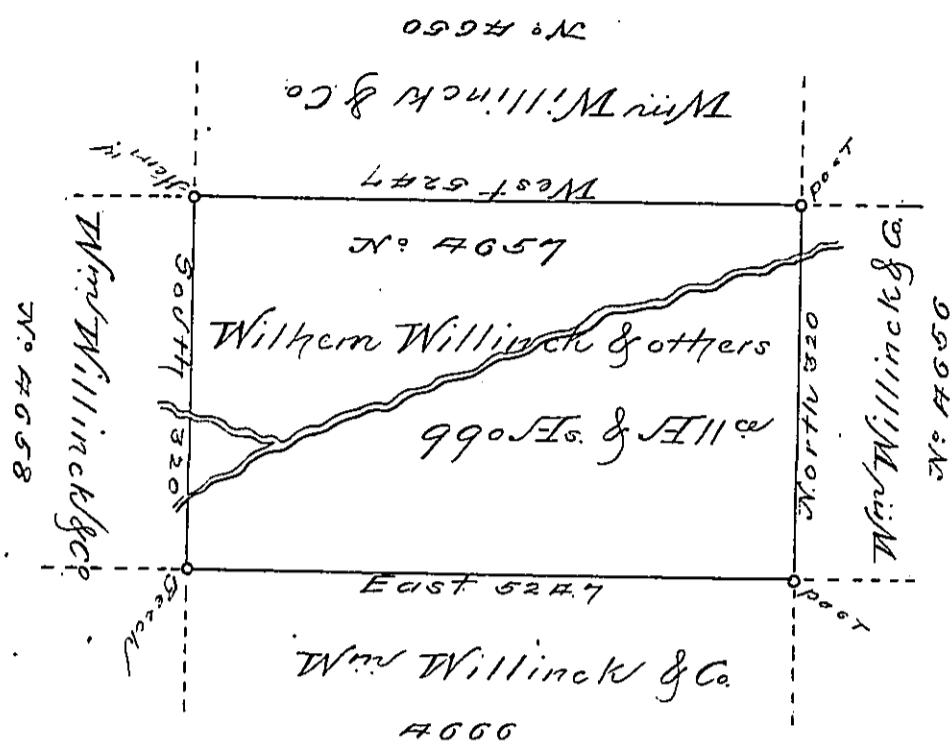 No. 4650
Wm Willinck & Co.
West 5247
Heml'k
post
No. 4657
Wilhem Willinck & others
990 As. & Allce
South 320
North 320
Wm Willinck & Co.
No. 4658
Wm Willinck & Co.
No. 4656
Beech
East 5247
post
Wm Willinck & Co.
4666